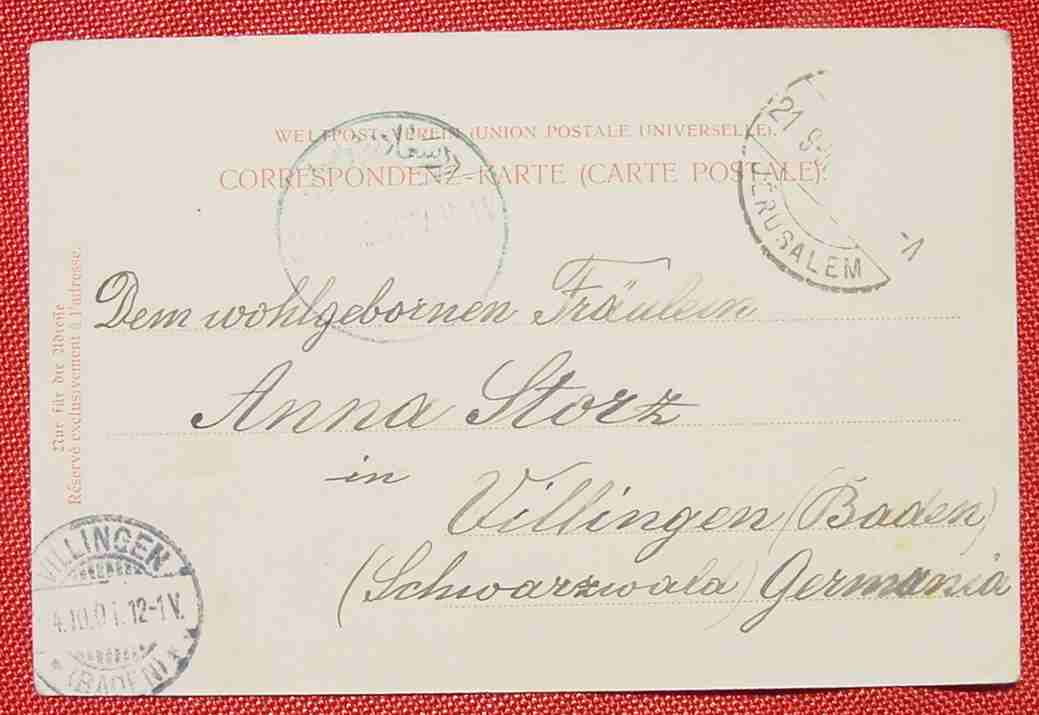 WELTPOST-VEREIN (UNION POSTALE UNIVERSELLE).
CORRESPONDENZ-KARTE (CARTE POSTALE).
21
JERUSALEM
Nur für die Adresse
Réservé exclusivement à l'adresse.
Dem wohlgebornen Fräulein
Anna Storz
in
Villingen (Baden)
(Schwarzwald) Germania
VILLINGEN
4.10.01.12-1V.
* (BADEN) *